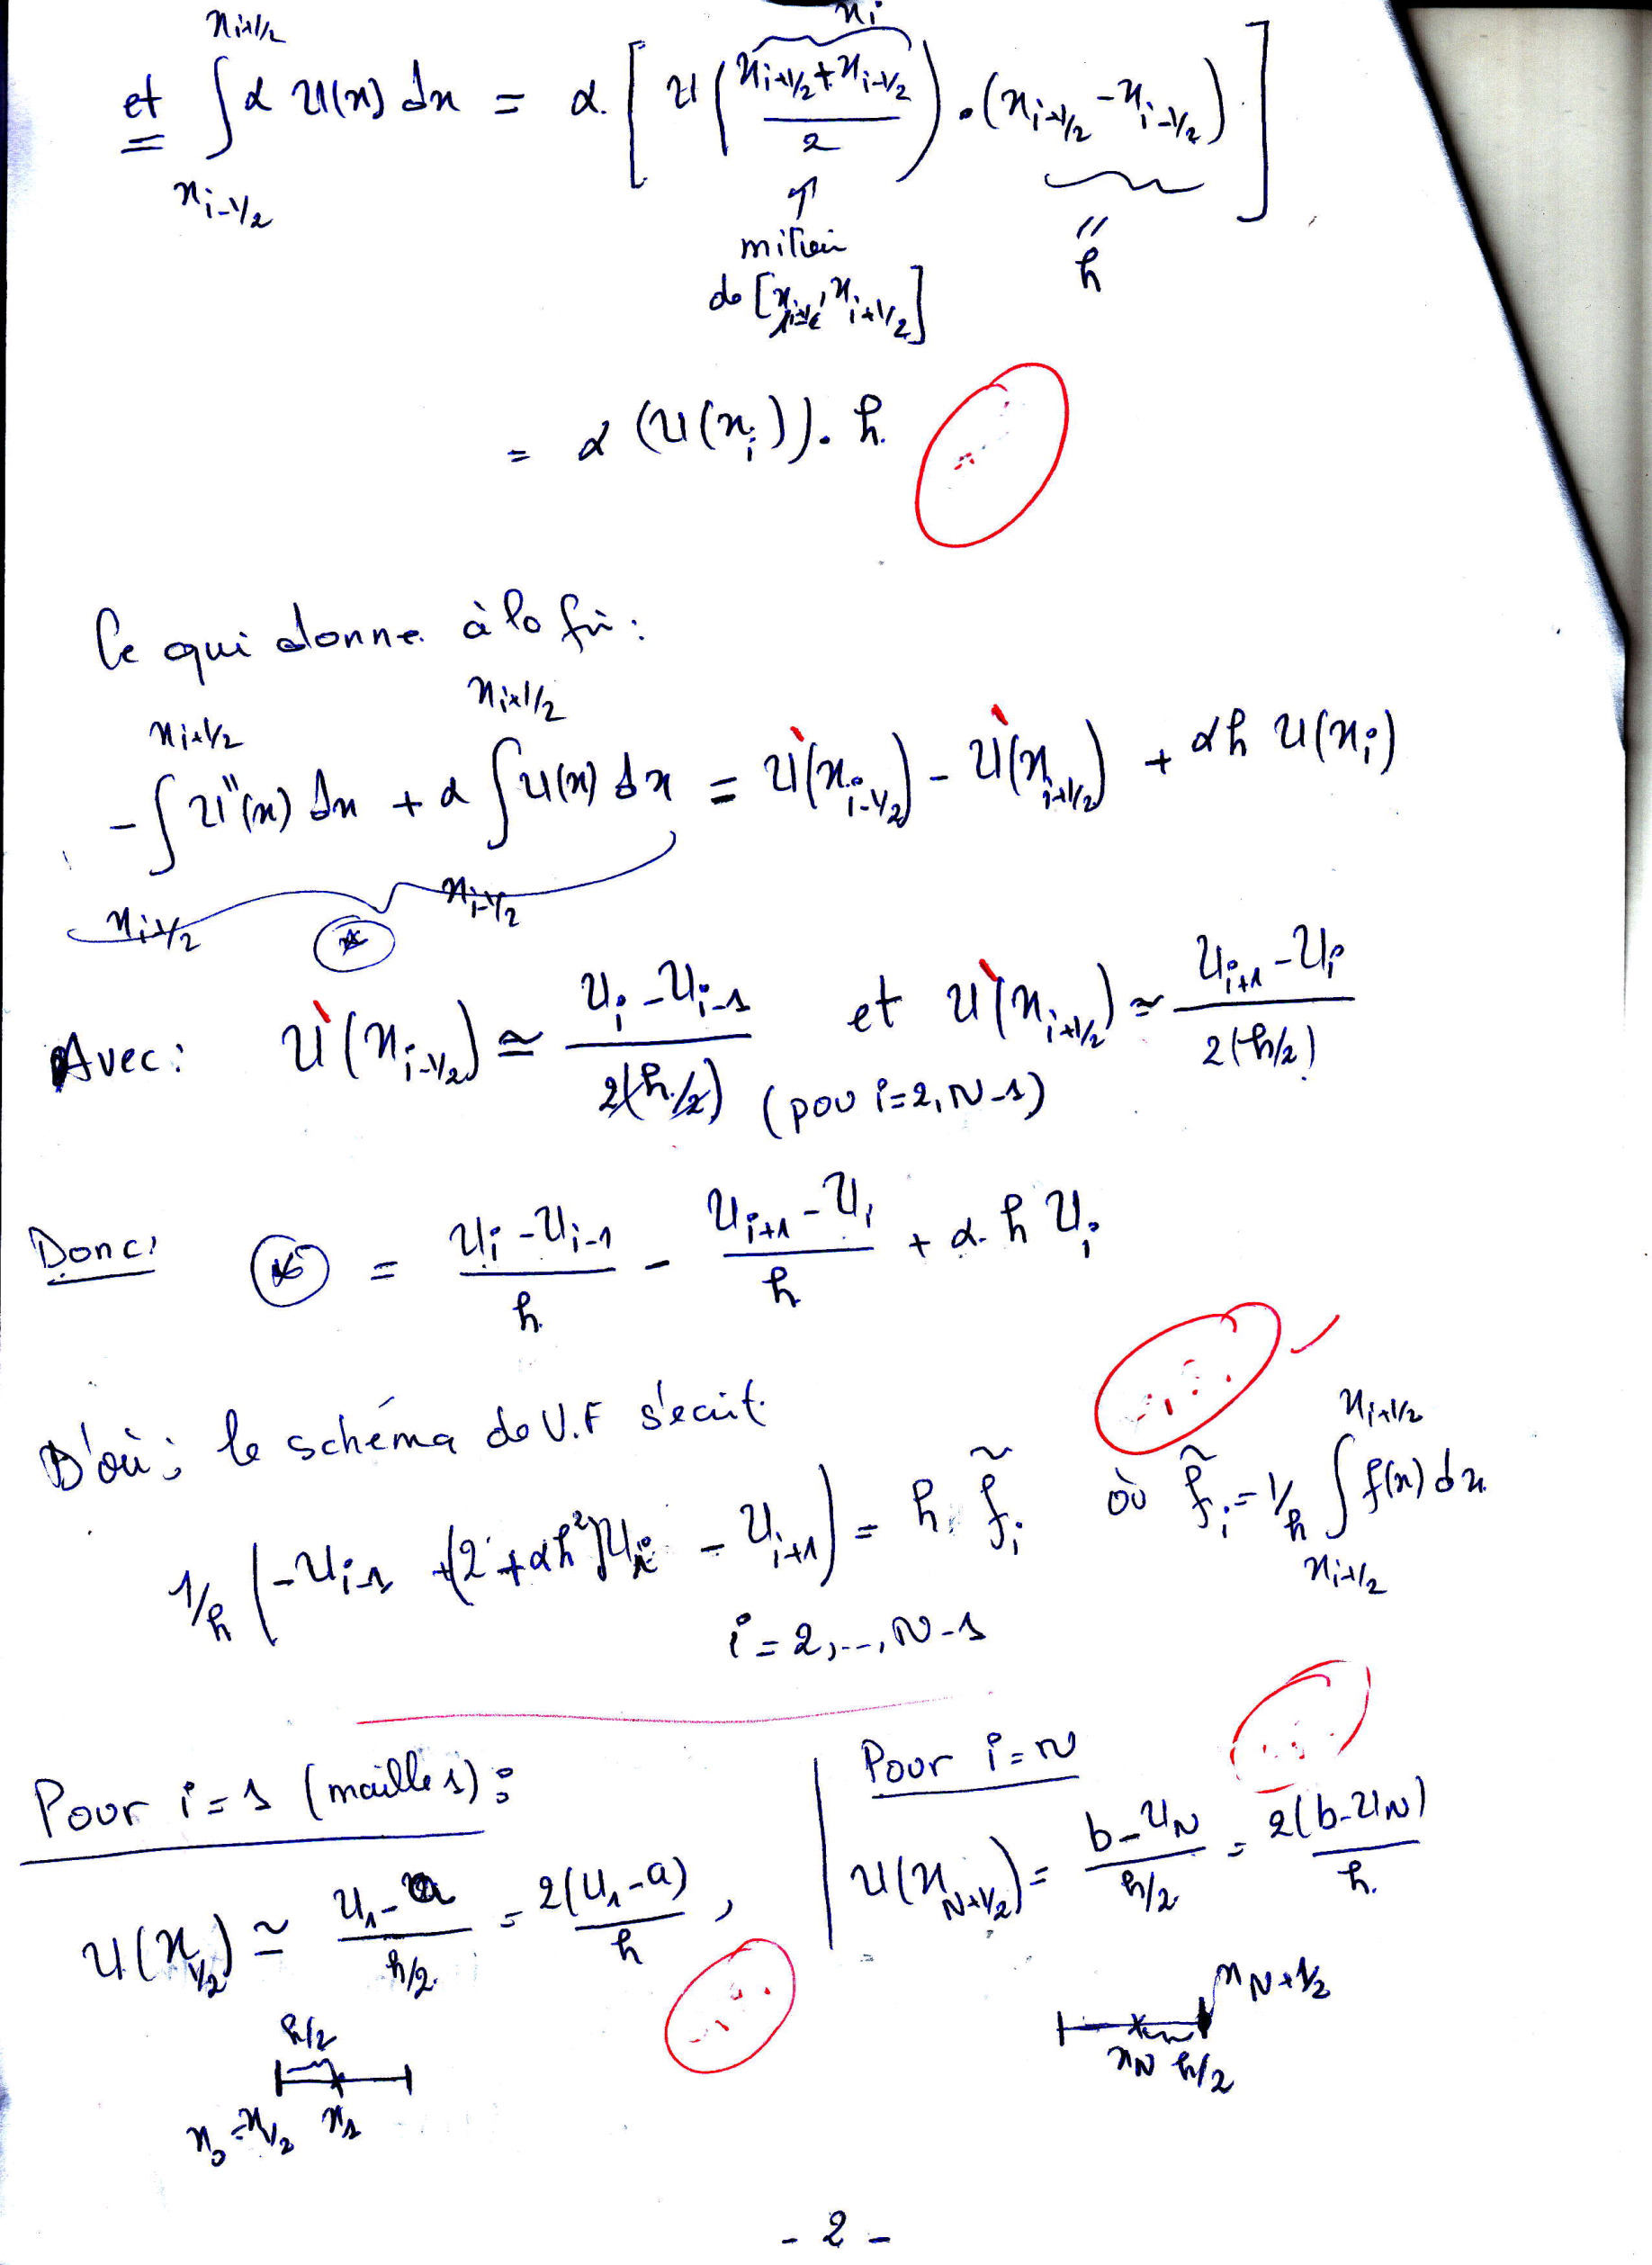 et ∫_{x_{i-1/2}}^{x_{i+1/2}} α u(x) dx = α. [ u( (x_{i+1/2} + x_{i-1/2}) / 2 ) • (x_{i+1/2} - x_{i-1/2}) ]
x_i
milieu
de [x_{i-1/2}, x_{i+1/2}]
= h
= α (u(x_i)). h
Ce qui donne à la fin :
- ∫_{x_{i-1/2}}^{x_{i+1/2}} u''(x) dx + α ∫_{x_{i-1/2}}^{x_{i+1/2}} u(x) dx = u'(x_{i-1/2}) - u'(x_{i+1/2}) + αh u(x_i)
(*)
Avec : u'(x_{i-1/2}) ≃ (u_i - u_{i-1}) / 2(h/2) et u'(x_{i+1/2}) ≃ (u_{i+1} - u_i) / 2(h/2)
(pou i=2, N-1)
Donc : (*) = (u_i - u_{i-1}) / h - (u_{i+1} - u_i) / h + α. h u_i
D'où ; le schéma de V.F s'écrit.
1/h (-u_{i-1} + (2 + αh²) u_i - u_{i+1}) = h. f̃_i où f̃_i = 1/h ∫_{x_{i-1/2}}^{x_{i+1/2}} f(x) dx.
i = 2, ..., N-1
Pour i = 1 (maille 1) :
u(x_{1/2}) ≃ (u_1 - a) / (h/2) = 2(u_1 - a) / h ,
h/2
x_0 = x_{1/2} x_1
Pour i = N
u(x_{N+1/2}) = (b - u_N) / (h/2) = 2(b - u_N) / h.
x_{N+1/2}
x_N h/2
- 2 -